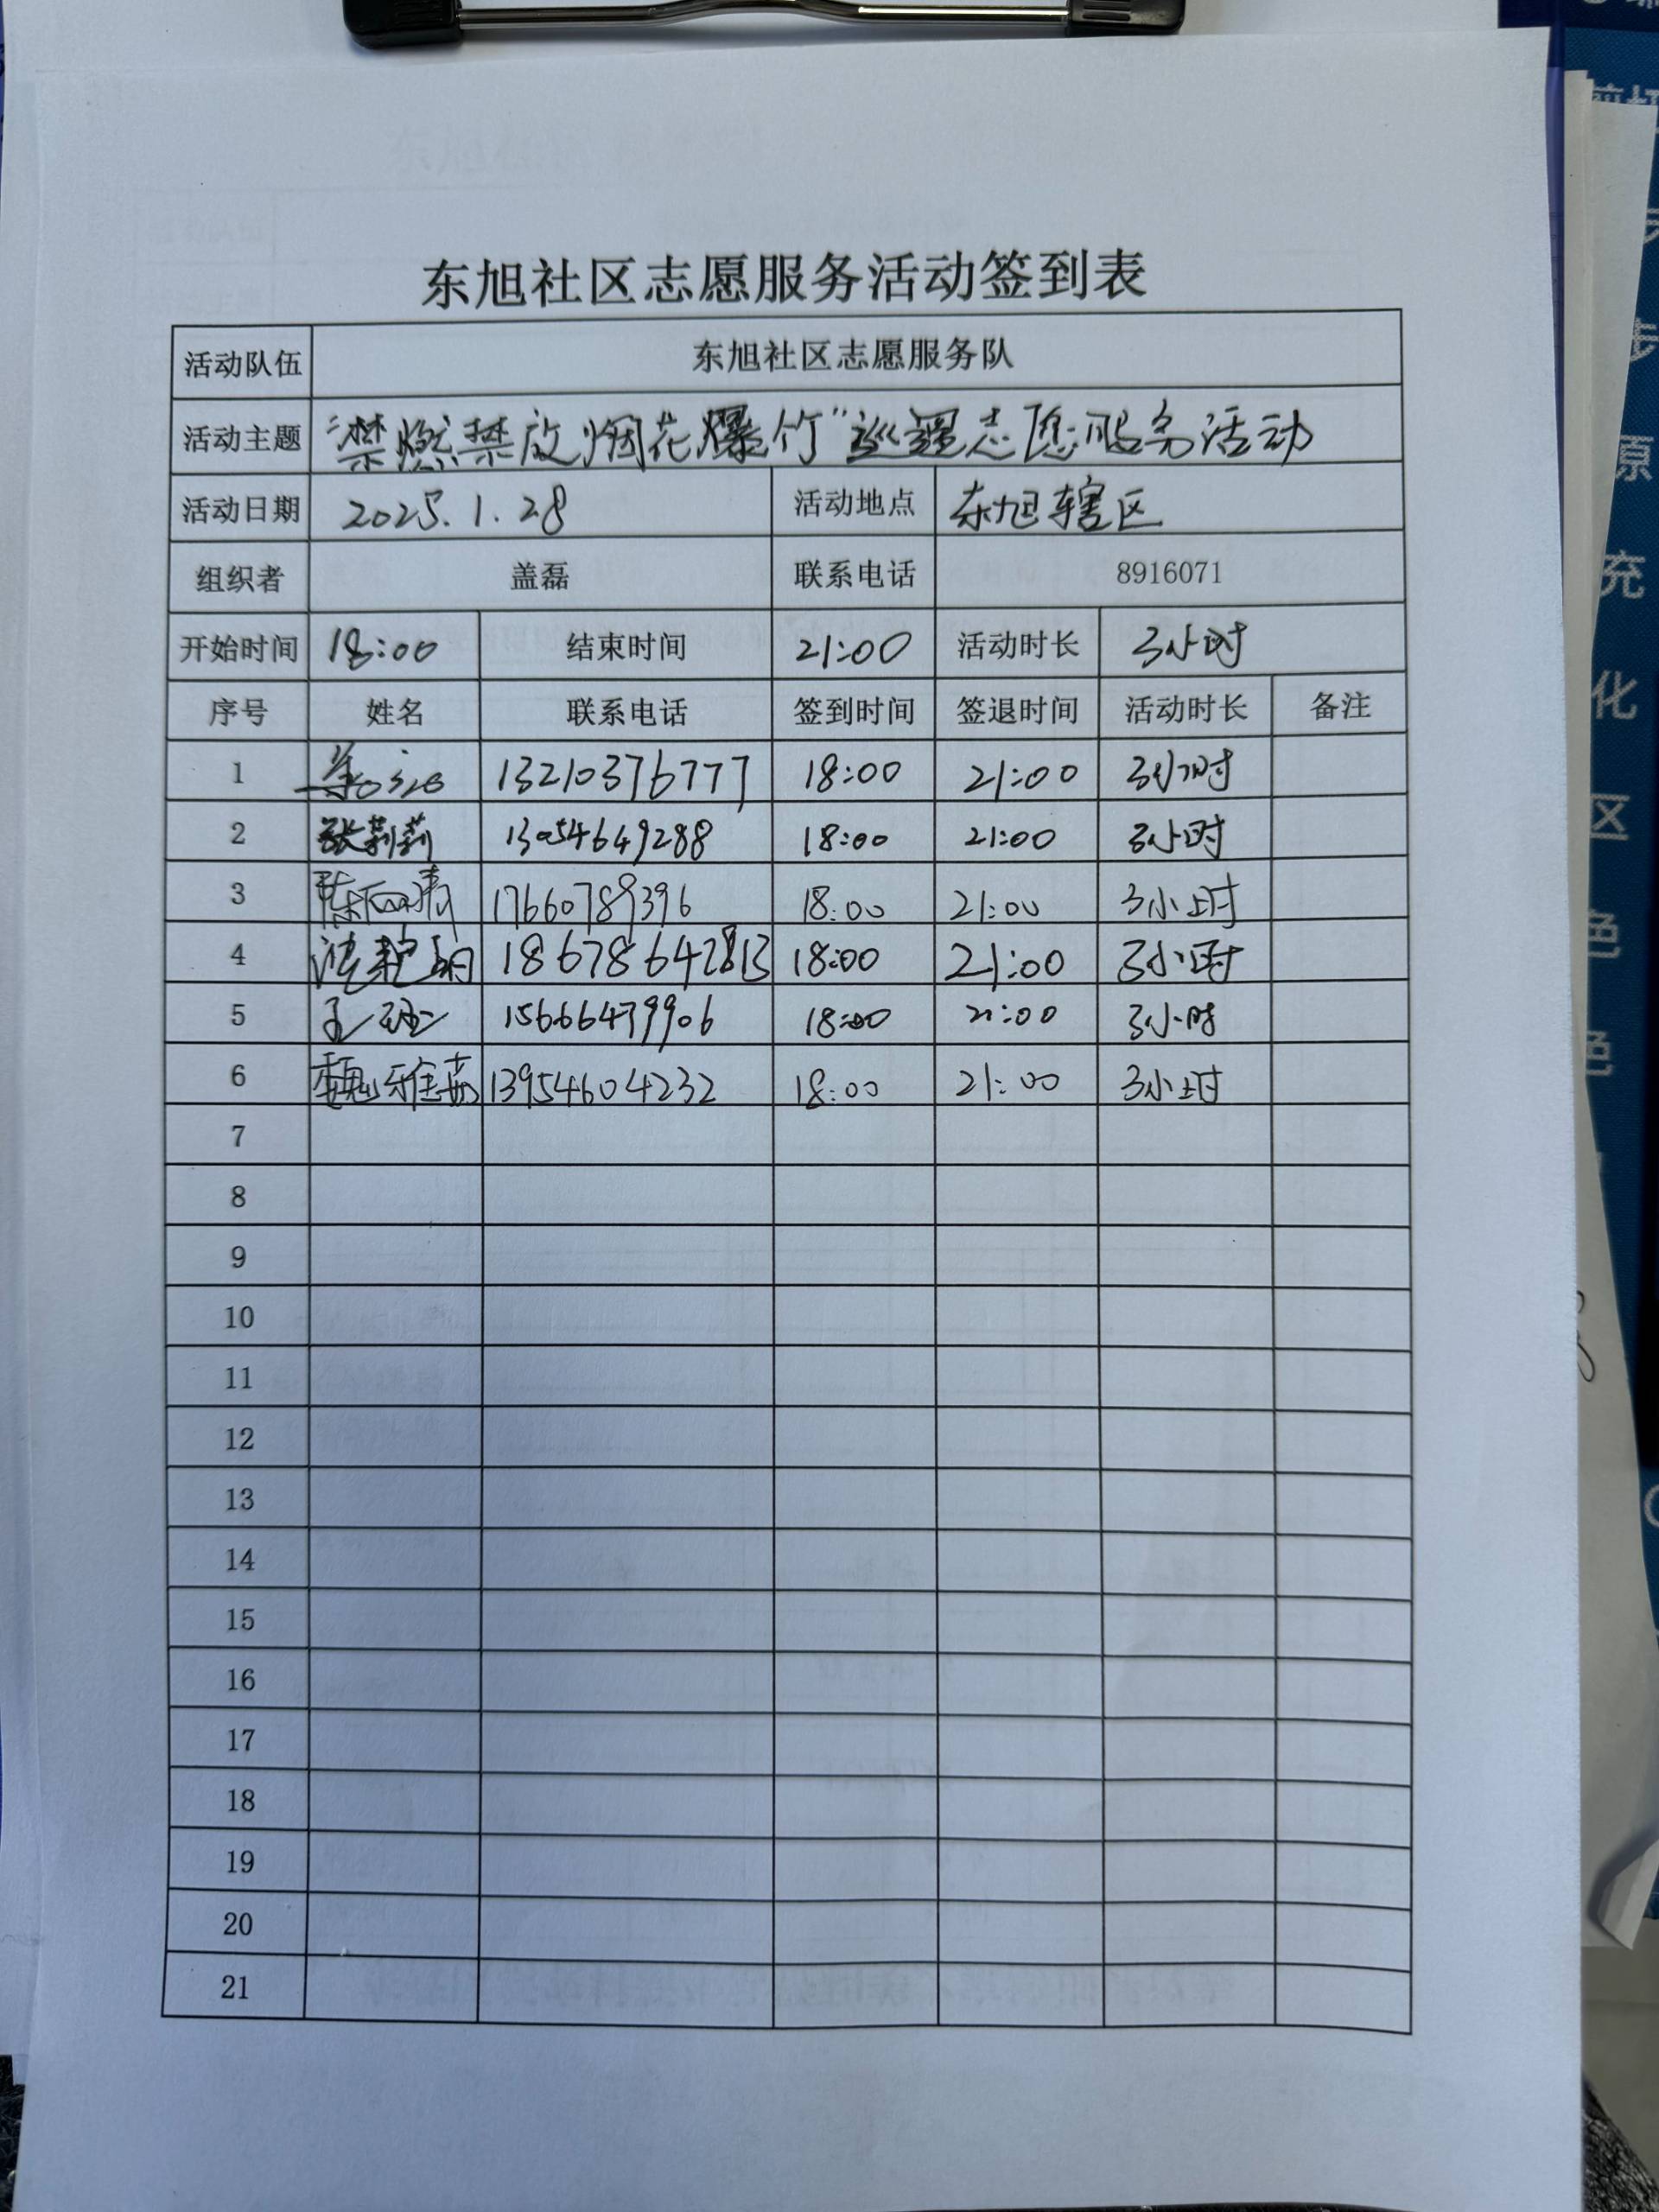 东旭社区志愿服务活动签到表
活动队伍 东旭社区志愿服务队
活动主题 “禁燃禁放烟花爆竹”巡逻志愿服务活动
活动日期 2025.1.28 活动地点 东旭辖区
组织者 盖磊 联系电话 8916071
开始时间 18:00 结束时间 21:00 活动时长 3小时
序号 姓名 联系电话 签到时间 签退时间 活动时长 备注
1 13210376777 18:00 21:00 3小时
2 张莉莉 13054649288 18:00 21:00 3小时
3 17660789396 18:00 21:00 3小时
4 18678642813 18:00 21:00 3小时
5 15666479906 18:00 21:00 3小时
6 魏雅茹 13954604232 18:00 21:00 3小时
7
8
9
10
11
12
13
14
15
16
17
18
19
20
21
步
原
充
化
区
色